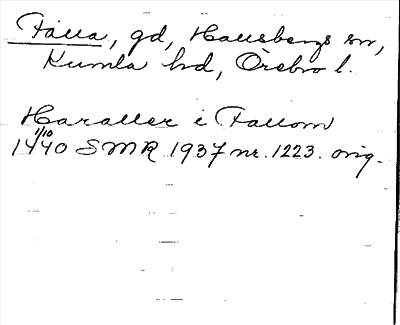 Falla, gd, Hallsbergs sn,
Kumla hd, Örebro l.
Haraller i Fallom
1/10
1440 SMR 1937 nr. 1223. orig.